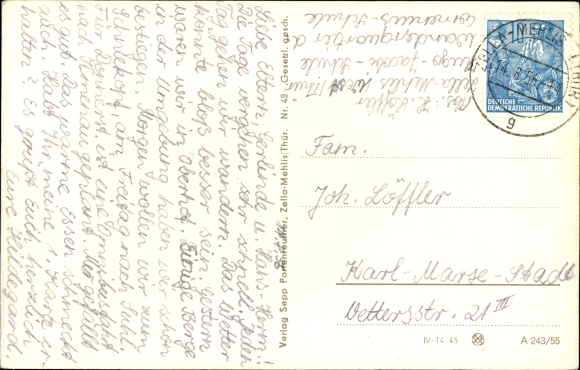 Liebe Eltern, Gerlinde u. Hans-Herm.!
Die Tage vergehen sehr schnell. Jeden
Tag gehen wir wandern. Das Wetter
könnte bloß besser sein. Gestern
waren wir in Oberhof. Einige Berge
in der Umgebung haben wir schon
bestiegen. Morgen wollen wir zum
Schneekopf, am Freitag nach Suhl.
Am Donnerst. ist eine Omnibusfahrt
nach Ilmenau geplant. Mir gefällt
es gut. Das warme Essen schmeckt
auch. Habt Ihr meine 1. Karte er-
halten? Es grüßt Euch herzlich
Eure Hildegard.
Verlag Sepp Portenreuther, Zella-Mehlis/Thür. Nr. 48 · Gesetzl. gesch.
Abs. H. Löffler
Zella-Mehlis West/Thür
Schule
Wanderquartier d.
Schule
ZELLA-MEHLIS (THÜR)
g
DEUTSCHE
DEMOKRATISCHE REPUBLIK
Fam.
Joh. Löffler
Karl-Marx-Stadt
Vettersstr. 21 III
IV-14-45
A 243/55